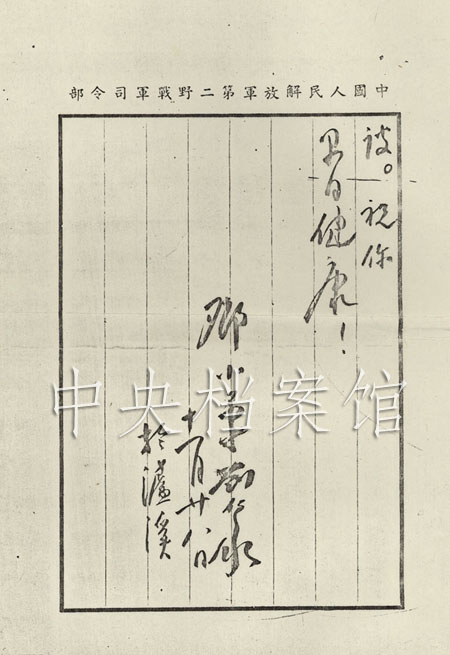 中國人民解放軍第二野戰軍司令部
。祝你
早日健康！
鄧小平 劉伯承
十一月廿八日
於瀘溪
中央档案馆